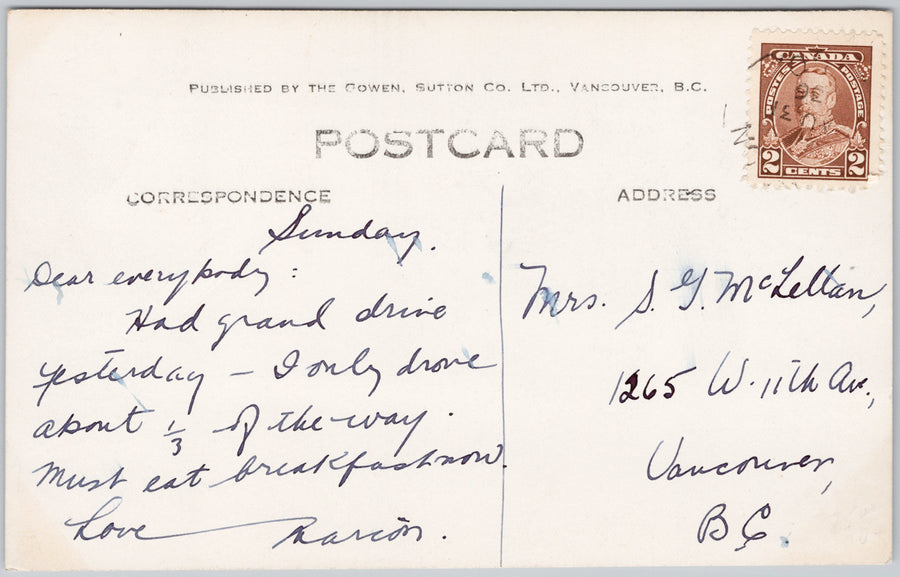 PUBLISHED BY THE GOWEN, SUTTON CO. LTD., VANCOUVER, B.C.
POSTCARD
CORRESPONDENCE
ADDRESS
CANADA
POSTES POSTAGE
2 CENTS 2
Sunday.
Dear everybody:
Had grand drive
yesterday – I only drove
about 1/3 of the way.
Must eat breakfast now.
Love Marion.
Mrs. S. G. McLellan,
1265 W. 11th Av.,
Vancouver,
B C.